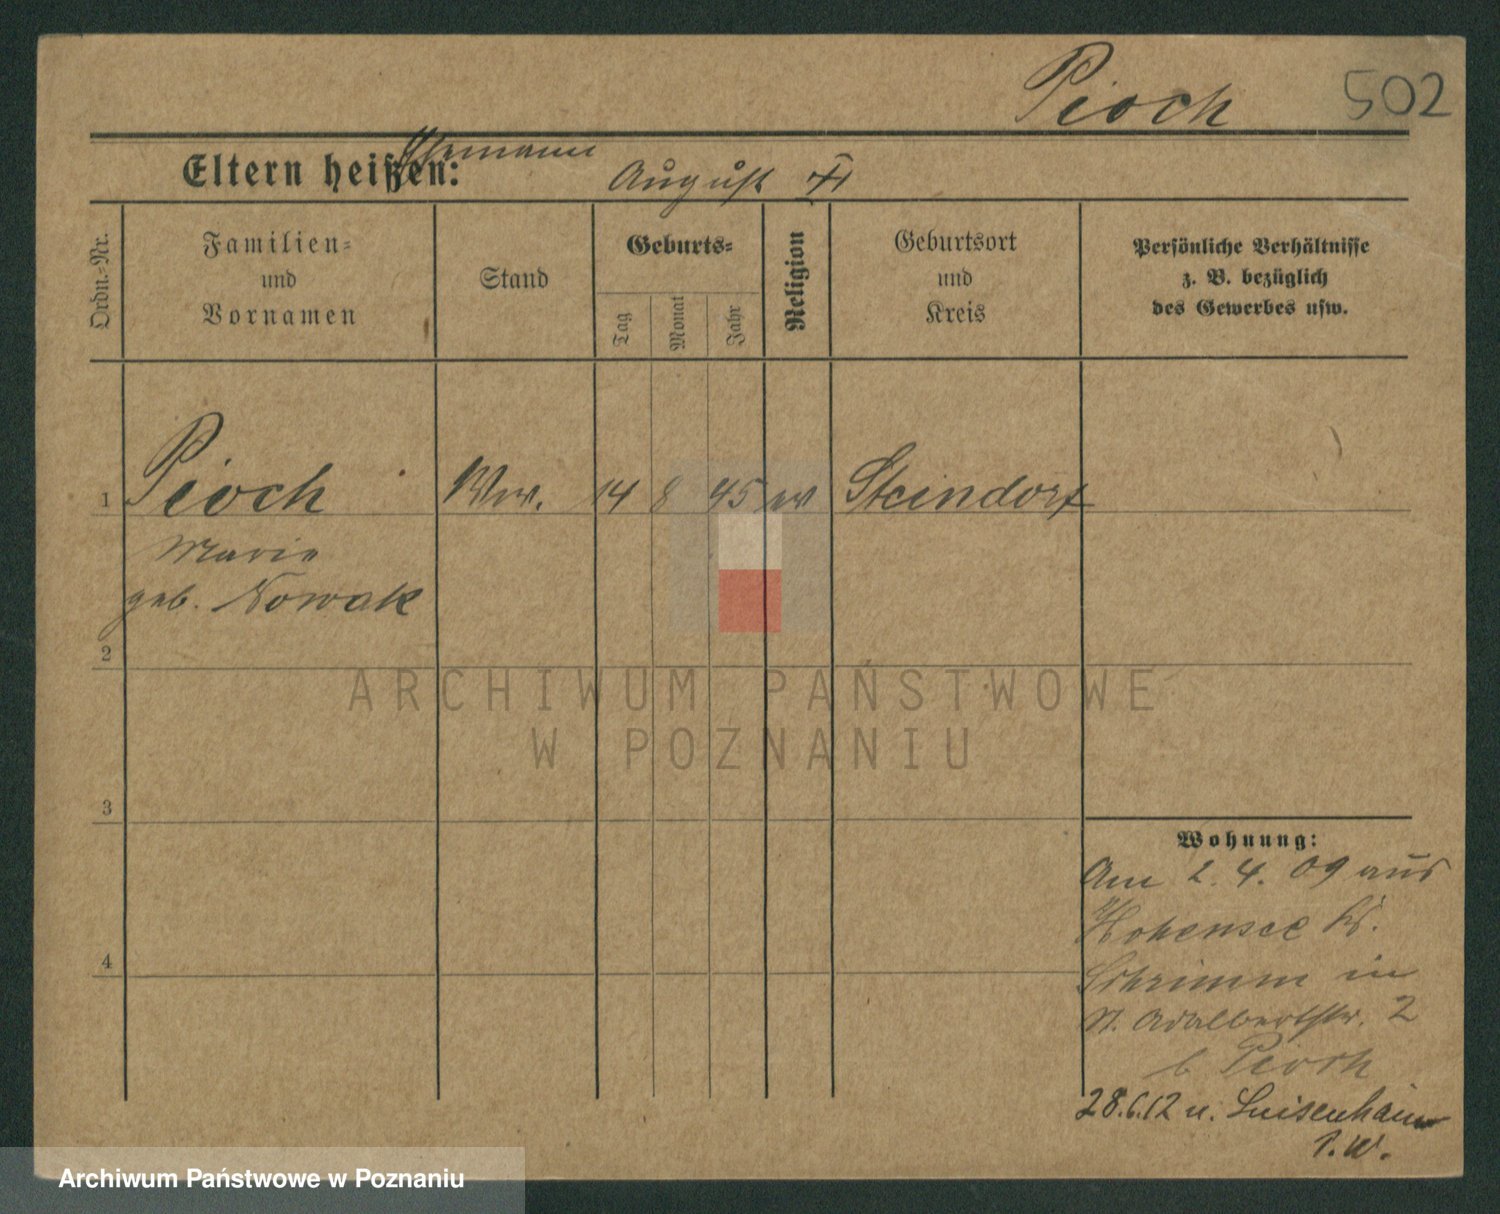 Pioch 502
Ehemann
Eltern heißen: August
Ordn.-Nr.
Familien-
und
Vornamen
Stand
Geburts-
Tag
Monat
Jahr
Religion
Geburtsort
und
Kreis
Persönliche Verhältnisse
z. B. bezüglich
des Gewerbes usw.
1 Pioch Ww. 14 8 45 ev Steindorf
Marie
geb. Nowak
2
ARCHIWUM PAŃSTWOWE
W POZNANIU
3
Wohnung:
Am 2. 4. 09 aus
Hohensee Kr.
4
Schrimm in
St. Adalbertstr. 2
b Pioch
28.6.12 n. Luisenhain
P. W.
Archiwum Państwowe w Poznaniu